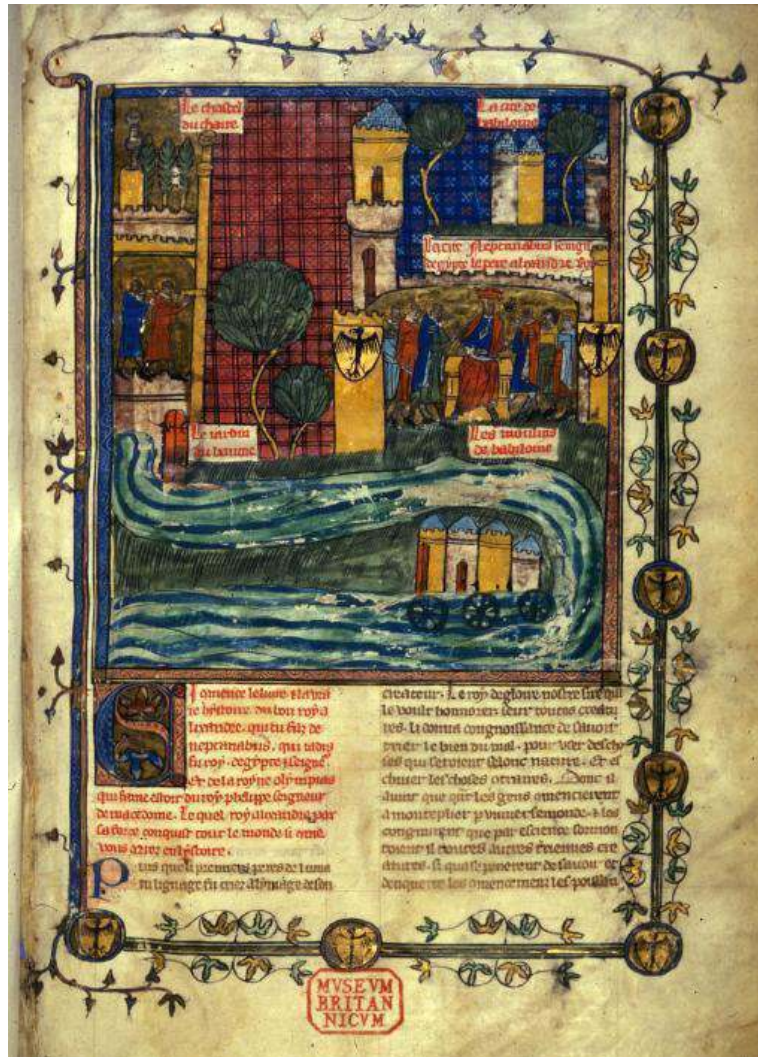 Le chastel
du chaire
La cite de
babiloine
La cite Neptanabus seingn
degypte le pere alixandre
Le iardin
du baume
Les moulins
de babiloine
Ci comence le liure & la vraie
hystoire du bon roy a
lixandre. qui fu filz de
neptanabus. qui iadis
fu roy degypte & seigne
Et de la royne olympias
qui feme estoit du roy phelippe seigneur
de macedoine. Le quel roy alixandre par
sa force conquist tout le monde si come
vous orrez en lystoire.
Puis que li premiers peres de lumain
lignage fu criez a lymage de son
createur. Le roy de gloire nostre sire qui
le voult honnorer seur toutes creatu
res. li donna congnoissance de sauoir
trier le bien du mal. pour user des cho
ses qui seroient selonc nature. et es
chiuer les choses
auint que quant les gens commencierent
a monteplier par uniuersel monde. & les
congnurent que par escience
toutes autres terriennes cre
atures. si que se penerent de sauoir et
denquerre les commencemens
MVSEVM
BRITAN
NICVM